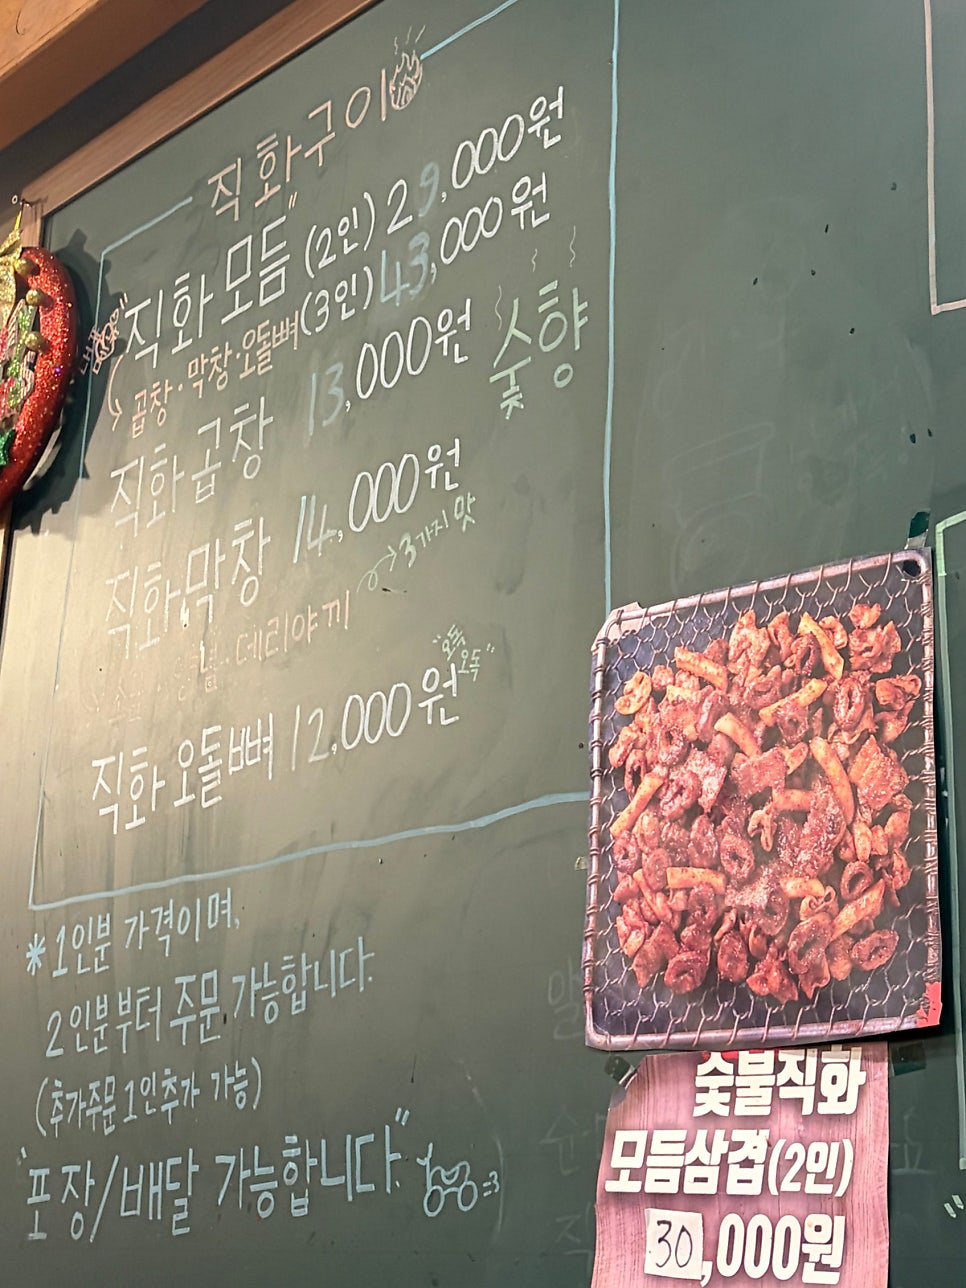 직화구이
"직화모듬" (2인) 29,000원
곱창·막창·오돌뼈 (3인) 43,000원
직화곱창 13,000원
숯향
직화막창 14,000원
데리야끼 → 3가지 맛
직화오돌뼈 12,000원
"오독오독"
* 1인분 가격이며,
2인분부터 주문 가능합니다.
(추가주문 1인추가 가능)
"포장/배달 가능합니다."
숯불직화
모듬삼겹(2인)
30,000원